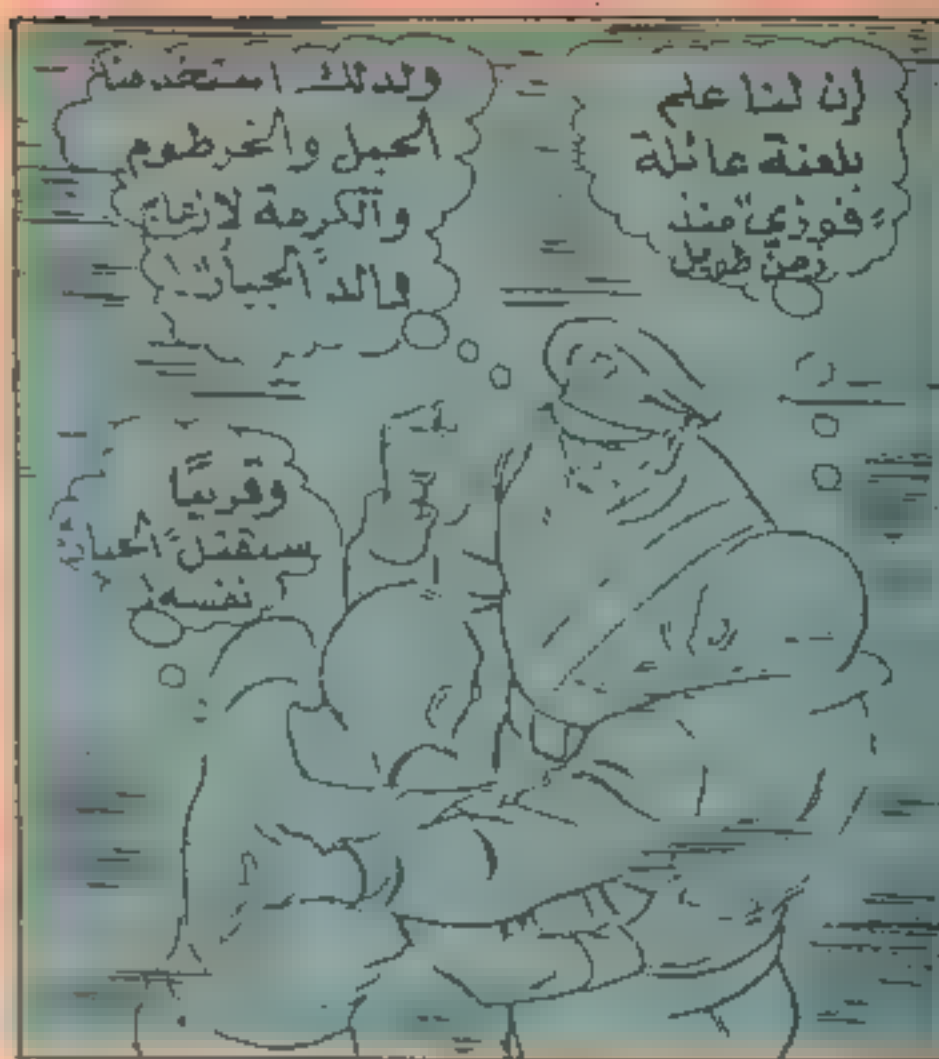 إن لنا علم
بلعنة عائلة
"فوزي" منذ
زمن طويل
ولذلك استخدمنا
الحبل والخرطوم
والكرمة لإزعاج
والد الجبار"
وقريبًا
سنقتل
نفسه!